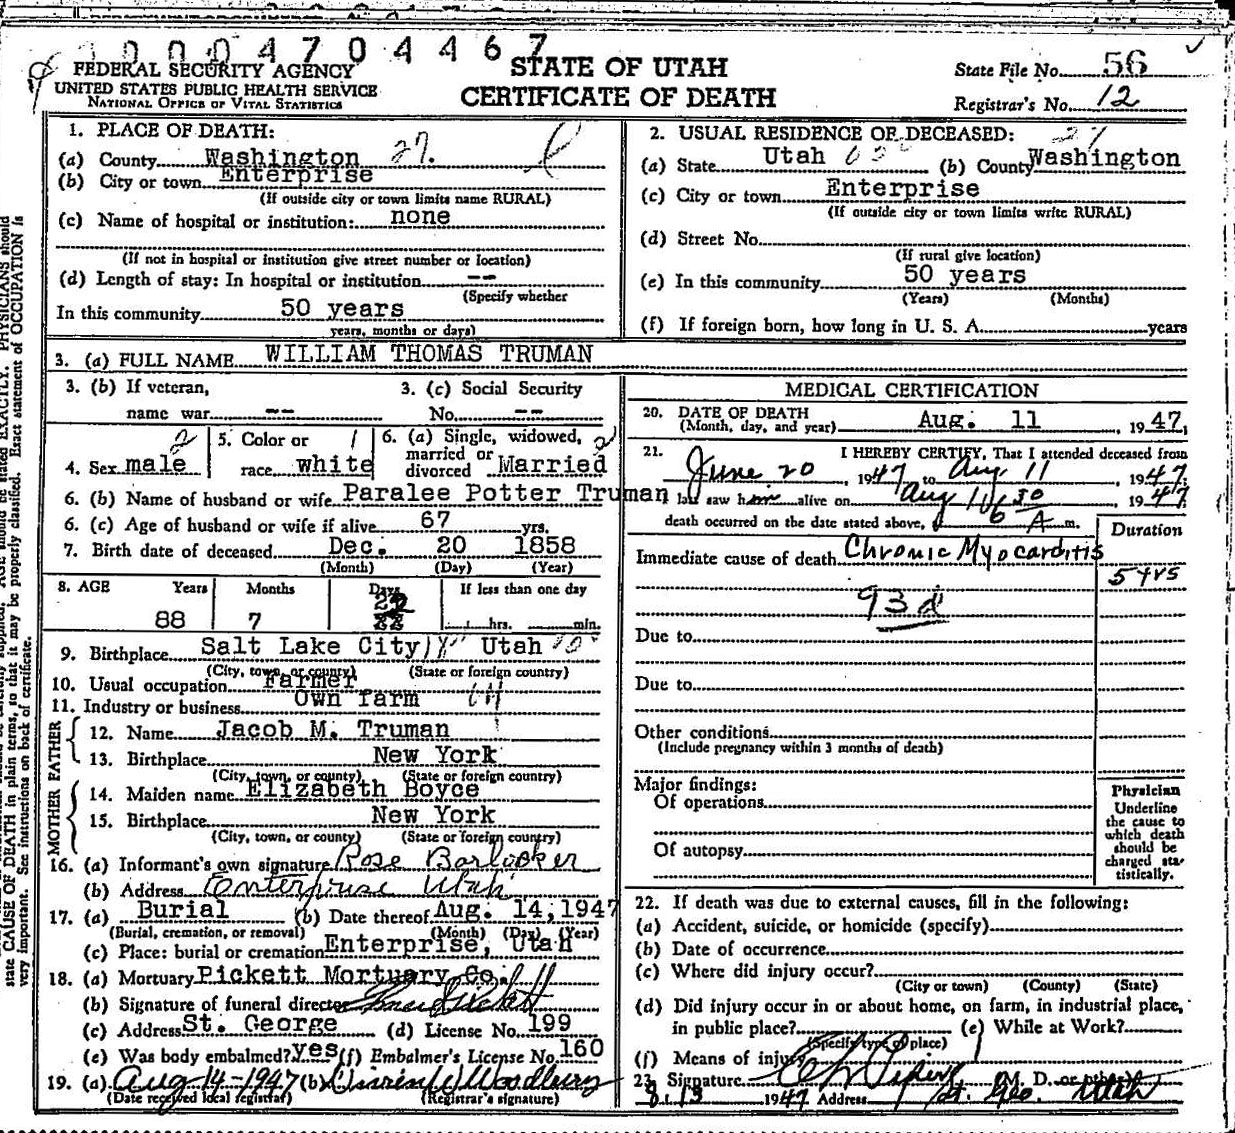 0 0 0 4 7 0 4 4 6 7
FEDERAL SECURITY AGENCY
UNITED STATES PUBLIC HEALTH SERVICE
NATIONAL OFFICE OF VITAL STATISTICS
STATE OF UTAH
CERTIFICATE OF DEATH
State File No. 56
Registrar's No. 12
1. PLACE OF DEATH: 27.
(a) County Washington
(b) City or town Enterprise
(If outside city or town limits name RURAL)
(c) Name of hospital or institution: none
(If not in hospital or institution give street number or location)
(d) Length of stay: In hospital or institution --
(Specify whether
In this community 50 years
years, months or days)
2. USUAL RESIDENCE OF DECEASED: 27
(a) State Utah (b) County Washington
(c) City or town Enterprise
(If outside city or town limits write RURAL)
(d) Street No.
(If rural give location)
(e) In this community 50 years
(Years) (Months)
(f) If foreign born, how long in U. S. A. years
3. (a) FULL NAME WILLIAM THOMAS TRUMAN
3. (b) If veteran, 3. (c) Social Security
name war -- No. --
4. Sex male 2
5. Color or race white 1
6. (a) Single, widowed, married or divorced Married 2
6. (b) Name of husband or wife Paralee Potter Truman
6. (c) Age of husband or wife if alive 67 yrs.
7. Birth date of deceased Dec. 20 1858
(Month) (Day) (Year)
8. AGE Years Months Days If less than one day
88 7 22 hrs. min.
9. Birthplace Salt Lake City Utah
(City, town, or county) (State or foreign country)
10. Usual occupation Farmer
11. Industry or business Own farm
FATHER
12. Name Jacob M. Truman
13. Birthplace New York
(City, town, or county) (State or foreign country)
MOTHER
14. Maiden name Elizabeth Boyce
15. Birthplace New York
(City, town, or county) (State or foreign country)
16. (a) Informant's own signature Rose Barlocker
(b) Address Enterprise Utah
17. (a) Burial (b) Date thereof Aug. 14, 1947
(Burial, cremation, or removal) (Month) (Day) (Year)
(c) Place: burial or cremation Enterprise, Utah
18. (a) Mortuary Pickett Mortuary Co.
(b) Signature of funeral director
(c) Address St. George (d) License No. 199
(e) Was body embalmed? yes (f) Embalmer's License No. 160
19. (a) Aug-14-1947 (b) Woodbury
(Date received local registrar) (Registrar's signature)
MEDICAL CERTIFICATION
20. DATE OF DEATH
(Month, day, and year) Aug. 11, 1947.
21. I HEREBY CERTIFY, That I attended deceased from
June 20, 1947 to Aug 11 1947.
I last saw him alive on Aug 10 1947
death occurred on the date stated above, 6 30 A m.
Duration
Immediate cause of death Chronic Myocarditis
5 yrs
93 d
Due to
Due to
Other conditions
(Include pregnancy within 3 months of death)
Major findings:
Of operations
Of autopsy
Physician
Underline
the cause to
which death
should be
charged sta-
tistically.
22. If death was due to external causes, fill in the following:
(a) Accident, suicide, or homicide (specify)
(b) Date of occurrence
(c) Where did injury occur?
(City or town) (County) (State)
(d) Did injury occur in or about home, on farm, in industrial place,
in public place? (e) While at Work?
(Specify type of place)
(f) Means of injury
23. Signature (M. D. or other)
8-13 1947 Address St. Geo. Utah
state CAUSE OF DEATH in plain terms, so that it may be properly classified. Exact statement of OCCUPATION is
very important. See instructions on back of certificate.